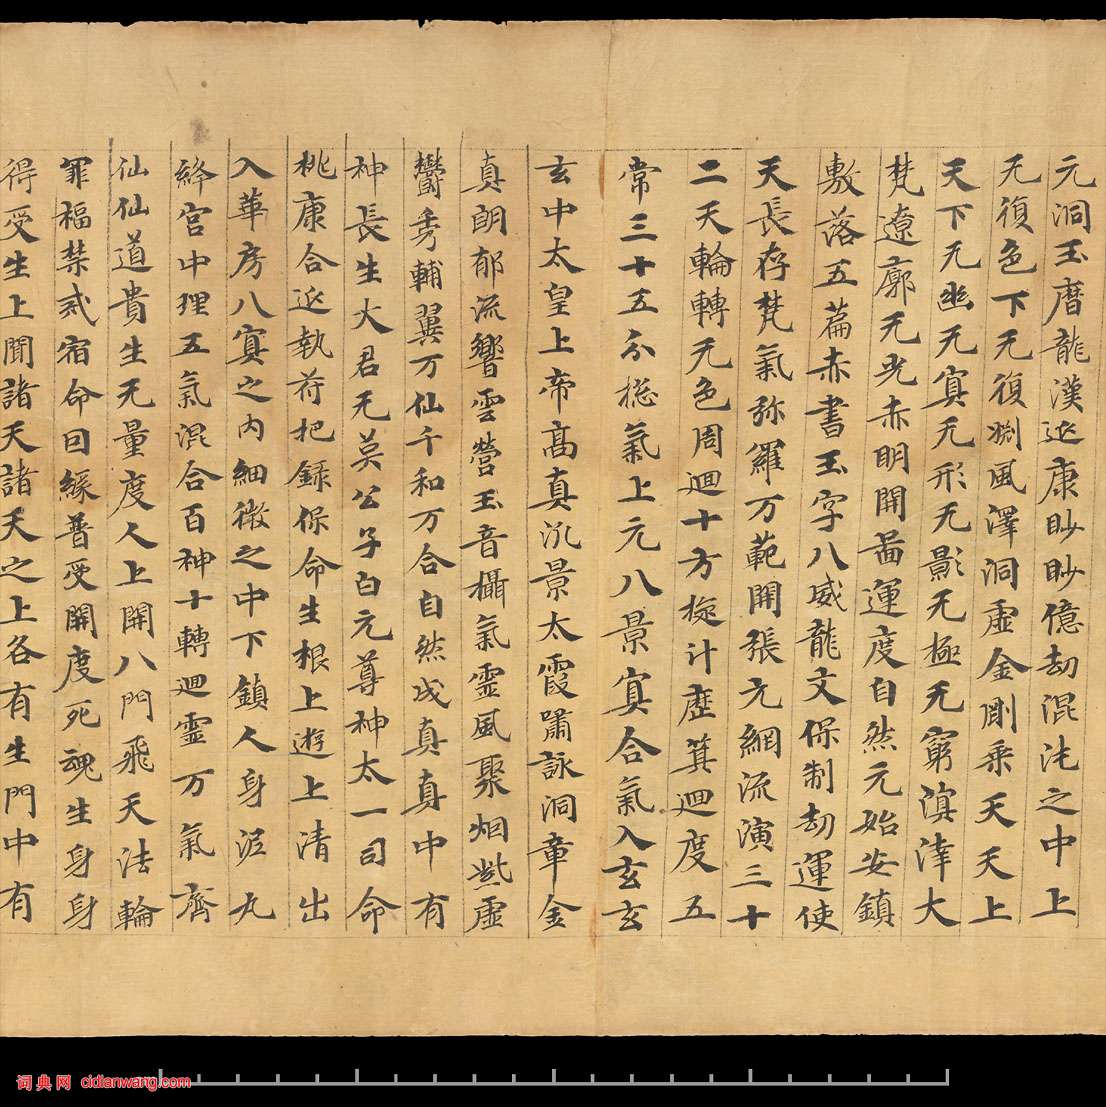 元洞玉曆龍漢延康眇眇億劫混沌之中上
无復色下无復渊風澤洞虛金剛乘天天上
天下无幽无冥无形无影无極无窮溟涬大
梵遼廓无光赤明開啚運度自然元始安鎮
敷落五篇赤書玉字八威龍文保制劫運使
天長存梵氣弥羅万範開張元綱流演三十
二天輪轉无色周迴十方旋斗歷箕迴度五
常三十五分揔氣上元八景冥合氣入玄玄
玄中太皇上帝高真汎景太霞嘯詠洞章金
真朗郁流響雲營玉音攝氣靈風聚烟紫虛
欝秀輔翼万仙千和万合自然成真真中有
神長生大君无英公子白元尊神太一司命
桃康合延執苻把籙保命生根上遊上清出
入華房八冥之内細微之中下鎮人身泥丸
絳宮中理五氣混合百神十轉迴靈万氣齊
仙仙道貴生无量度人上開八門飛天法輪
罪福禁戒宿命因緣普受開度死魂生身身
得受生上聞諸天諸天之上各有生門中有
词典网 cidianwang.com